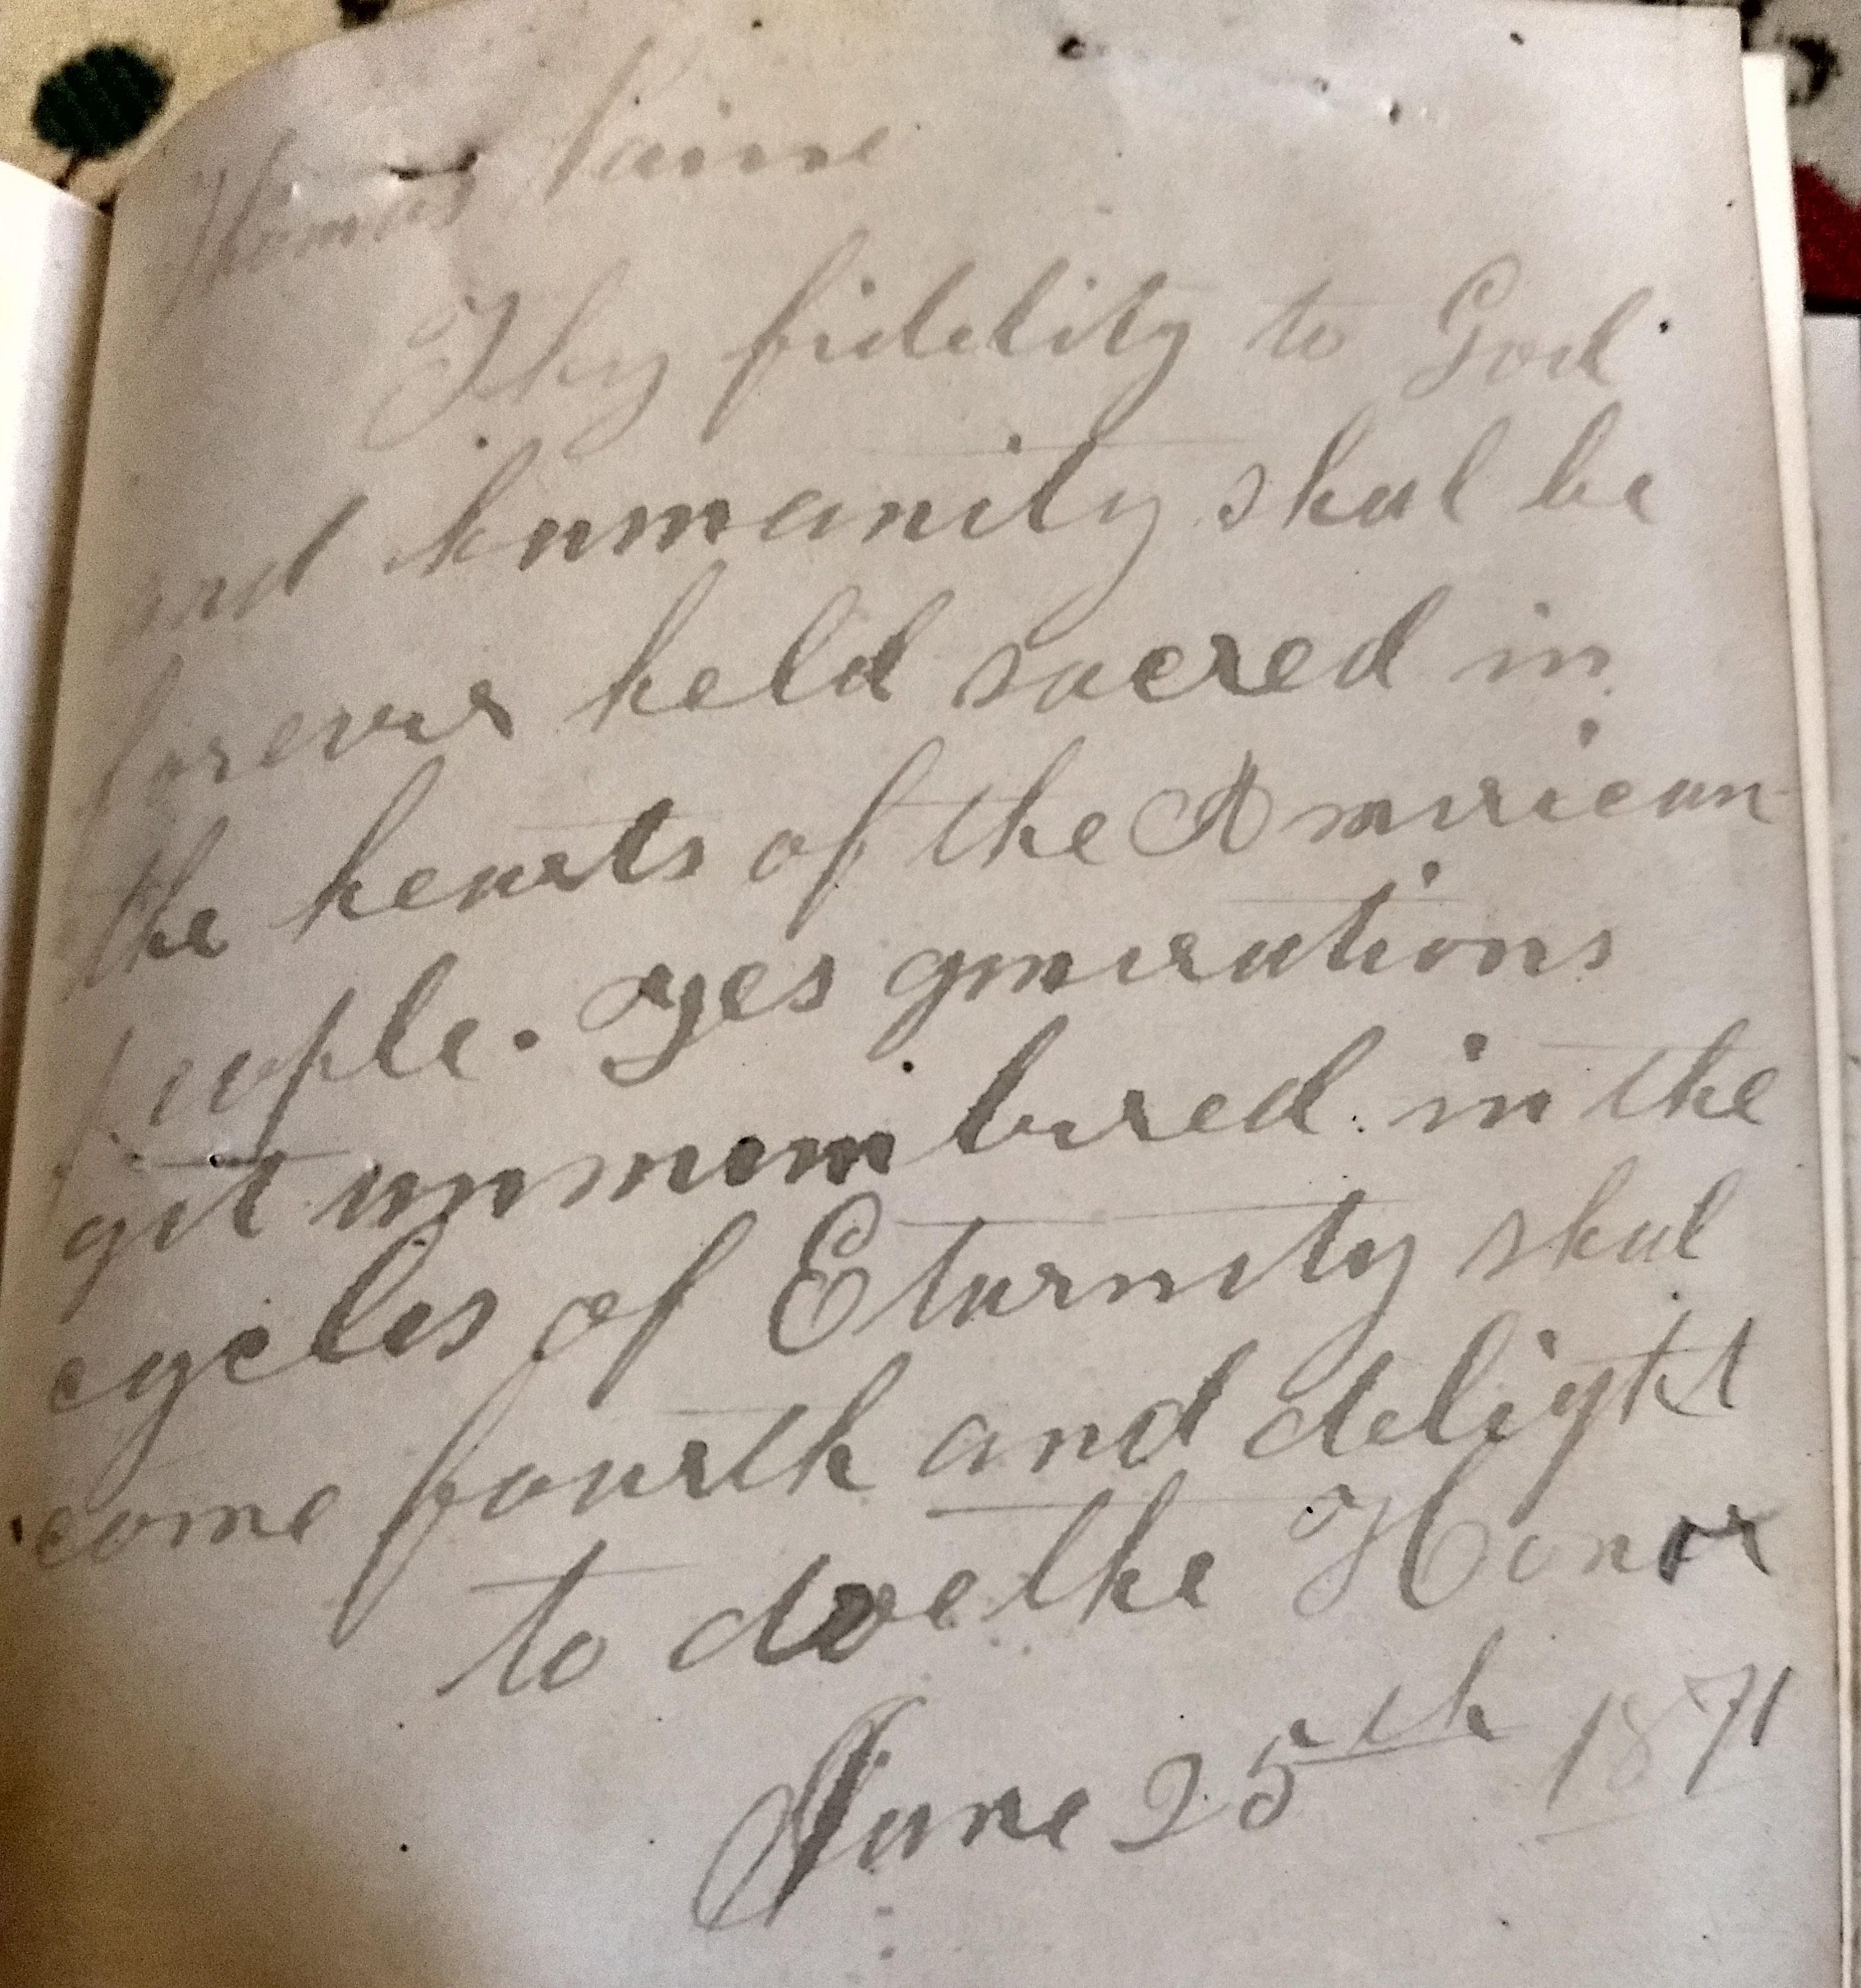 Thomas Paine
Thy fidelity to God
and humanity shal be
forever held sacred in
the hearts of the American
people. Yes generations
yet unnumbured in the
cycles of Eturnity shal
come fourth and delight
to doe the Honor
June 25th 1871